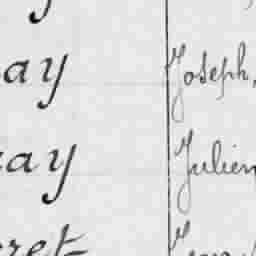 ay Joseph,
ay Julien
ret